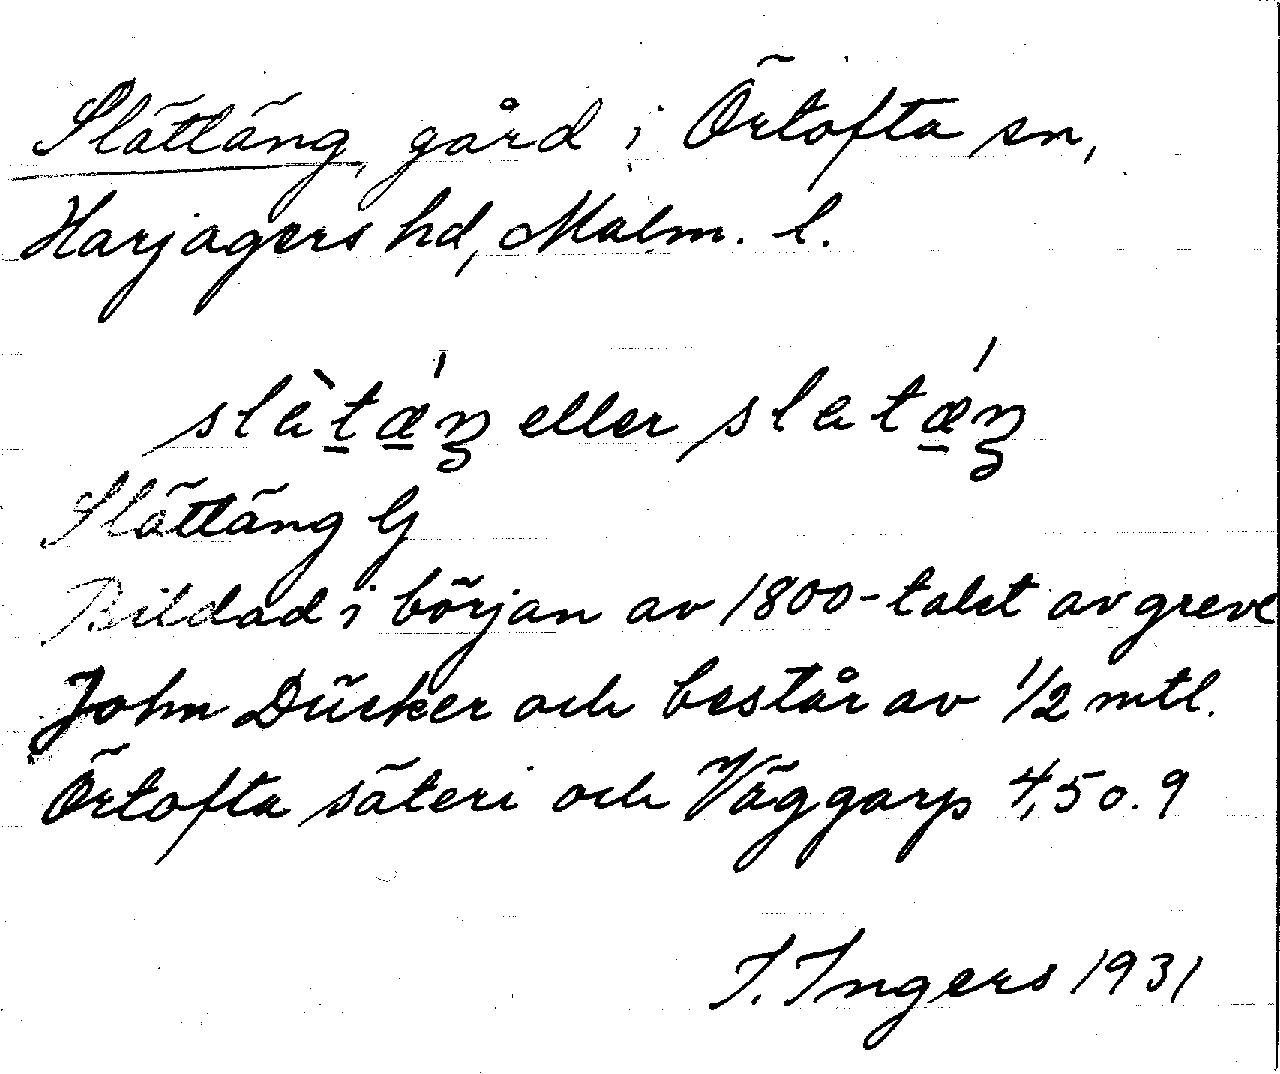 Slättäng, gård i Örtofta sn,
Harjagers hd, Malm. l.
slàtæ̍ŋ eller slatæ̍ŋ
Slättäng G
Bildad i början av 1800-talet av greve
John Dücker och består av 1/2 mtl.
Örtofta säteri och Väggarp 4,5 o. 9
I. Ingers 1931